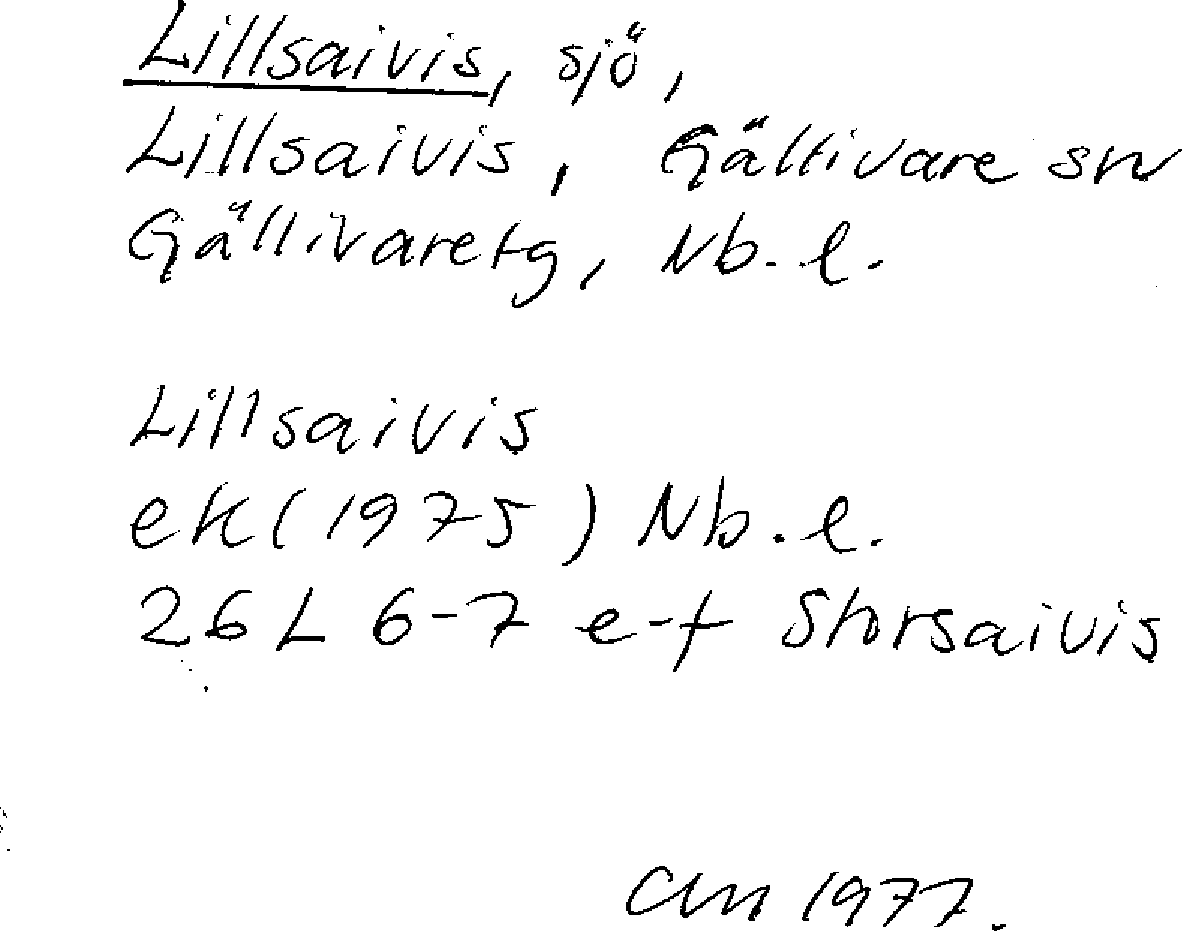 Lillsaivis, sjö,
Lillsaivis, Gällivare sn
Gällivare tg, Nb. l.
Lillsaivis
ek (1975) Nb. l.
26 L 6-7 e-f Storsaivis
1977.